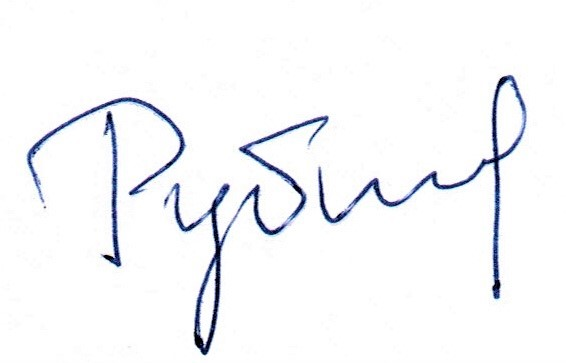 Рубин